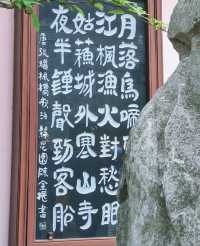 月落烏啼
江楓漁火對愁眠
姑蘓城外寒山寺
夜半鐘聲到客船
唐張繼楓橋夜泊 靜思園陳金根書